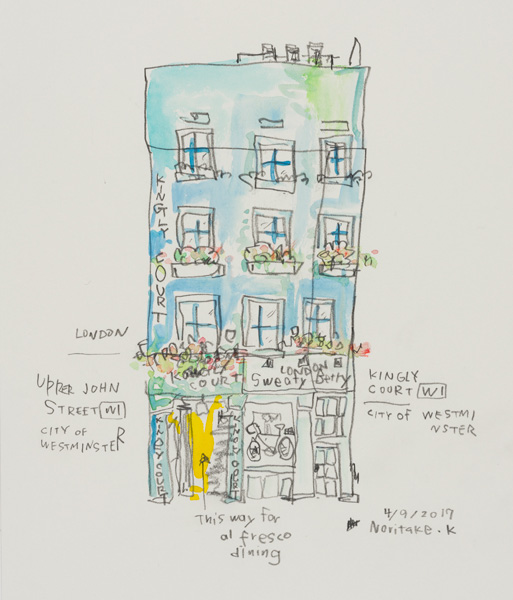 KINGLY COURT
LONDON
UPPER JOHN
STREET W1
CITY OF
WESTMINSTER
KINGLY
COURT
LONDON
Sweaty Betty
KINGLY
COURT W1
CITY OF WESTMI
NSTER
KINGLY COURT
KINGLY COURT
This way for
al fresco
dining
4/9/2019
Noritake.K